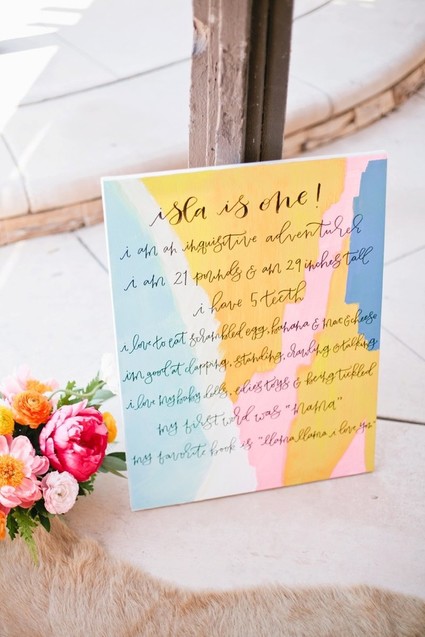 isla is one!
i am an inquisitive adventurer
i am 21 pounds & am 29 inches tall
i have 5 teeth
i love to eat scrambled egg, banana & mac & cheese
i'm good at clapping, standing, crawling & talking
i love my baby dolls, elias toys & being tickled
my first word was "mama"
my favorite book is "llama llama i love you"